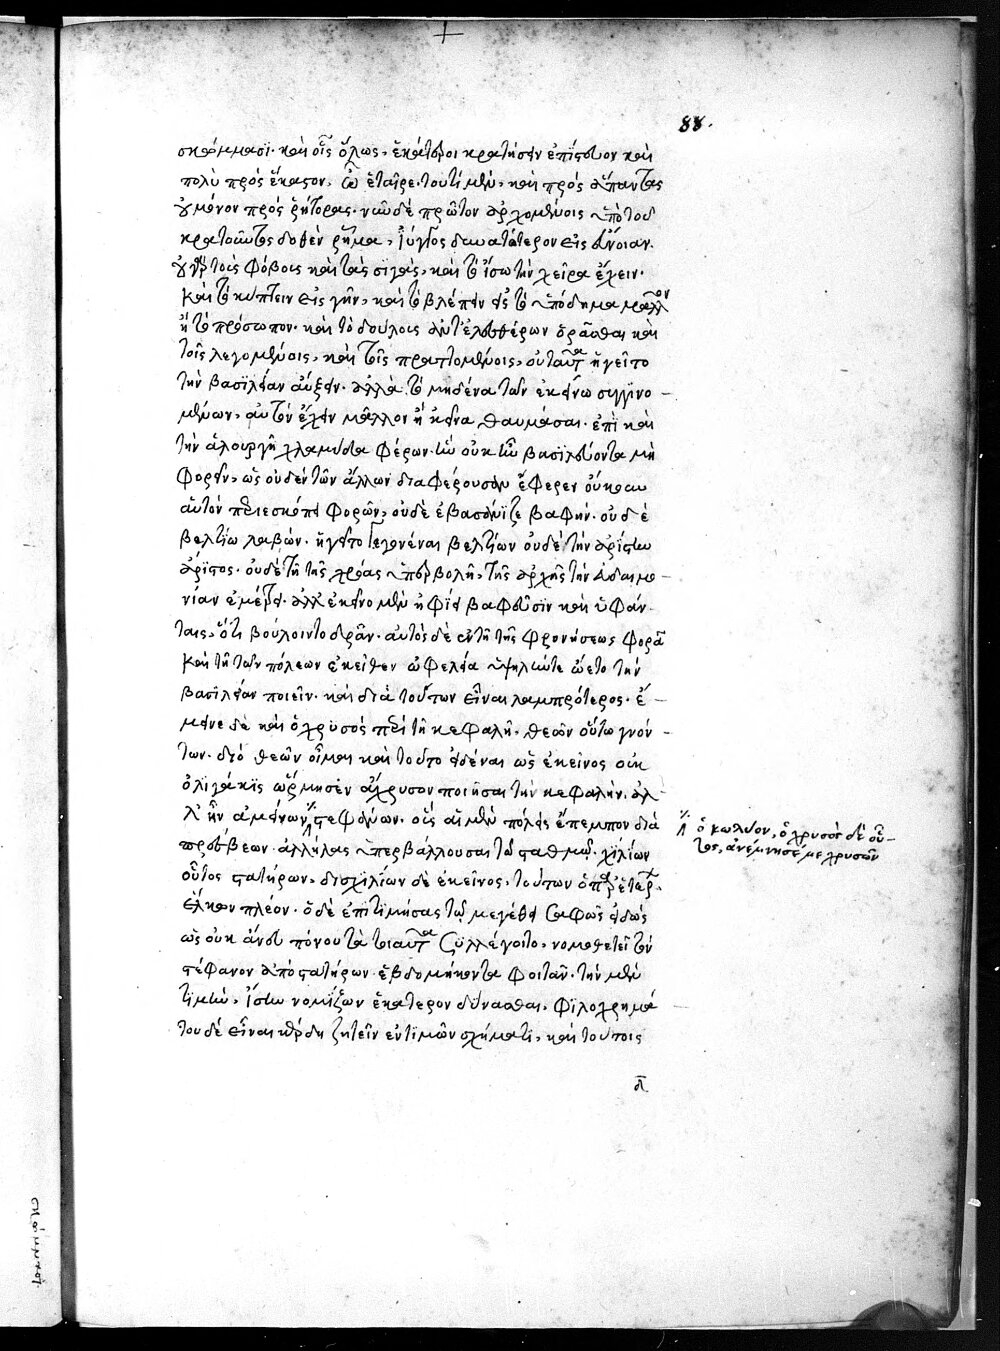 88.
σκώμμασι. καὶ οἷς ὅλως, ἑκάτεροι κρατήσειν ἐπίστευον καὶ
πολὺ πρὸς ἕκαστον, ὦ ἑταῖρε. τουτὶ μὲν, καὶ πρὸς ἅπαντας
οὐ μόνον πρὸς ῥήτορας. νῦν δὲ πρῶτον ἀρχομένοις ἀπὸ τοῦ
κρατοῦντος δοθὲν ῥῆμα, ἴυγγος δυνατώτερον εἰς εὔνοιαν.
οὐ γὰρ τοῖς φόβοις καὶ ταῖς σιγαῖς, καὶ τῷ εἴσω τὴν χεῖρα ἔχειν.
καὶ τῷ κύπτειν εἰς γῆν, καὶ τῷ βλέπειν εἰς τὸ ὑπόδημα μᾶλλον
ἢ τὸ πρόσωπον. καὶ τὸ δούλοις ἀντ' ἐλευθέρων ὁρᾶσθαι καὶ
τοῖς λεγομένοις, καὶ τοῖς πραττομένοις, οὐ ταῦτα ἡγεῖτο
τὴν βασιλείαν αὔξειν. ἀλλὰ τὸ μηδένα τῶν ἐκείνῳ συγγινο-
μένων, αὐτὸν ἔχειν μᾶλλον ἢ κεῖνα θαυμάσαι. ἐπεὶ καὶ
τὴν ἁλουργῆ χλαμύδα φέρων. ἣν οὐκ ἦν βασιλεύοντα μὴ
φορεῖν, ὡς οὐδὲν τῶν ἄλλων διαφέρουσαν ἔφερεν οὔκουν
αὑτὸν περιεσκόπει φορῶν, οὐδὲ ἐβασάνιζε βαφὴν. οὐδὲ
βελτίω λαβών. ἡγεῖτο γεγονέναι βελτίων οὐδὲ τὴν ἀρίστην
ἄριστος. οὐδὲ τῇ τῆς χρόας ὑπερβολῇ, τῆς ἀρχῆς τὴν εὐδαιμο-
νίαν ἐμέτρει. ἀλλ' ἐκεῖνο μὲν ἠφίει βαφεῦσιν καὶ ὑφάν-
ταις, ὅτι βούλοιντο δρᾶν. αὐτὸς δὲ ἐν τῇ τῆς φρονήσεως φορᾷ
καὶ τῇ τῶν πόλεων ἐκεῖθεν ὠφελείᾳ ὑψηλήν τε ᾤετο τὴν
βασιλείαν ποιεῖν. καὶ διὰ τούτων εἶναι λαμπρότερος. ἔ-
μεινε δὲ καὶ ὁ χρυσὸς περὶ τῇ κεφαλῇ. θεῶν οὕτω γνόν-
των. διὸ θεῶν οἶμαι καὶ τοῦτο εἰδέναι ὡς ἐκεῖνος οὐκ
ὀλιγάκις ὥρμησεν ἄχρυσον ποιῆσαι τὴν κεφαλήν. ἀλ-
λ' ἦν ἀμείνων στεφάνων. οὓς αἱ μὲν πόλεις ἔπεμπον διὰ
πρέσβεων ἀλλήλας ὑπερβάλλουσαι τῷ σταθμῷ. χιλίων
οὗτος στατήρων, δισχιλίων δὲ ἐκεῖνος, τούτων ὁ παρ' ἑτέρων
εἷλκον πλέον. ὁ δὲ ἐπιτιμήσας τῷ μεγέθει σαφῶς εἰδὼς
ὡς οὐκ ἄνευ πόνου τὰ τοιαῦτα συλλέγοιτο, νομοθετεῖ τὸν
στέφανον ἀπὸ στατήρων ἑβδομήκοντα φοιτᾶν. τὴν μὲν
τιμὴν, ἴσην νομίζων ἑκάτερον δύνασθαι. φιλοχρημά-
του δὲ εἶναι κέρδη ζητεῖν ἐν τιμῶν σχήματι, καὶ τούτοις
ὁ κωλύον, ὁ χρυσὸς δὲ οὗ-
τος, ἀνέμνησέ με χρυσῶν